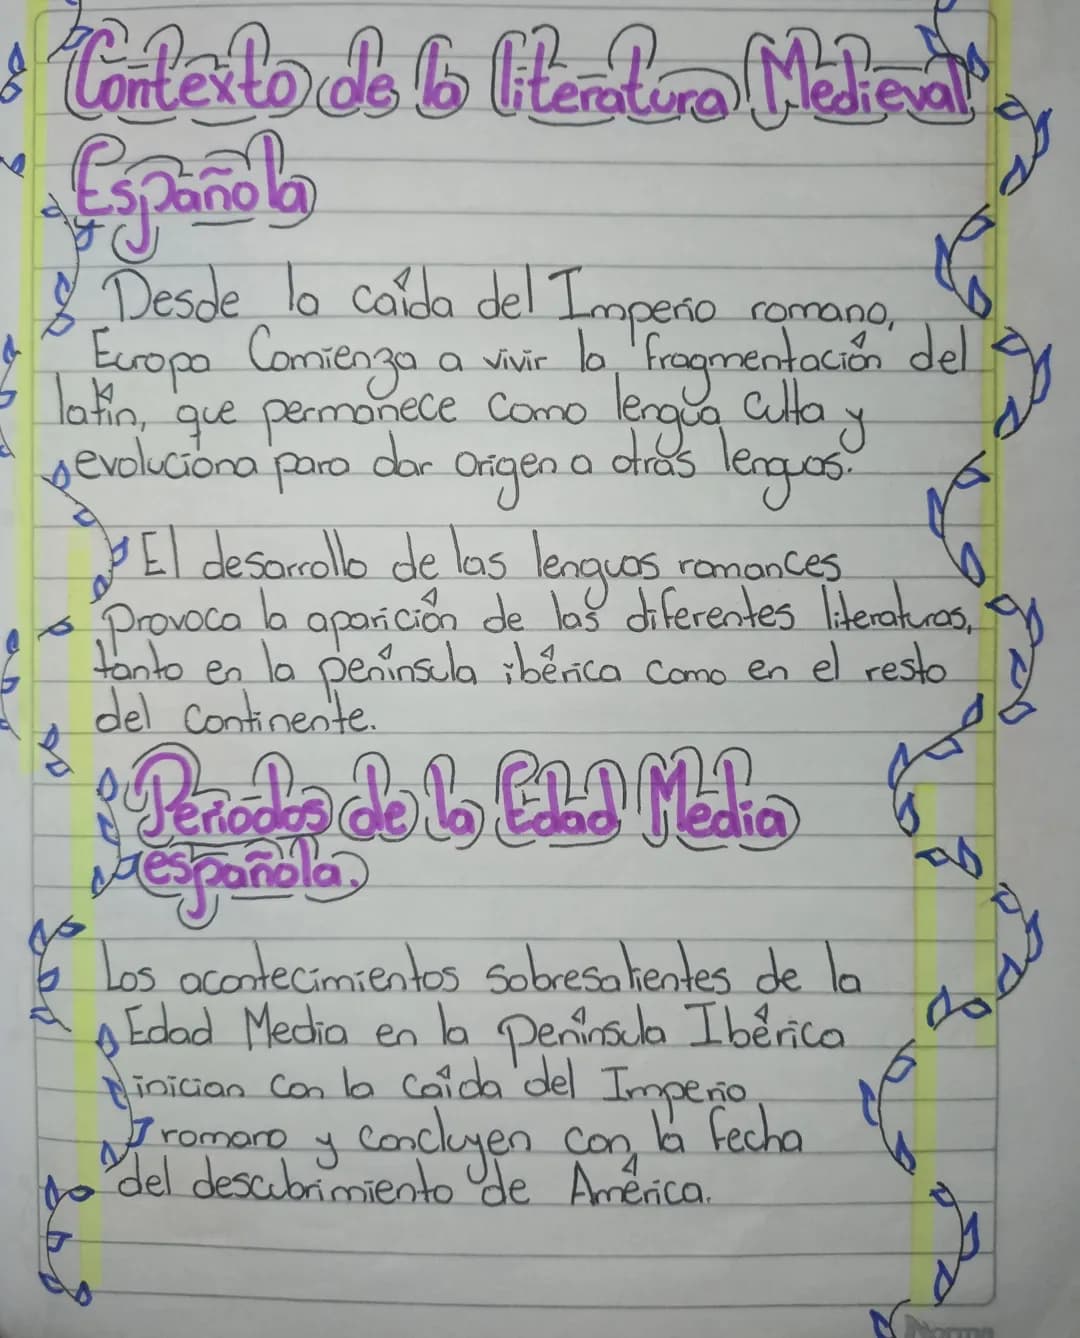 Contexto de la literatura Medieval
Española
Desde la caída del Imperio romano,
Europa Comienza a vivir la fragmentación del
latín, que permanece como lengua culta y
evoluciona para dar origen a otras lenguas.
El desarrollo de las lenguas romances
Provoca la aparición de las diferentes literaturas,
tanto en la península ibérica como en el resto
del Continente.
Periodos de la Edad Media
española.
Los acontecimientos sobresalientes de la
Edad Media en la Península Ibérica
inician con la caída del Imperio
romano y concluyen con la fecha
del descubrimiento de América.